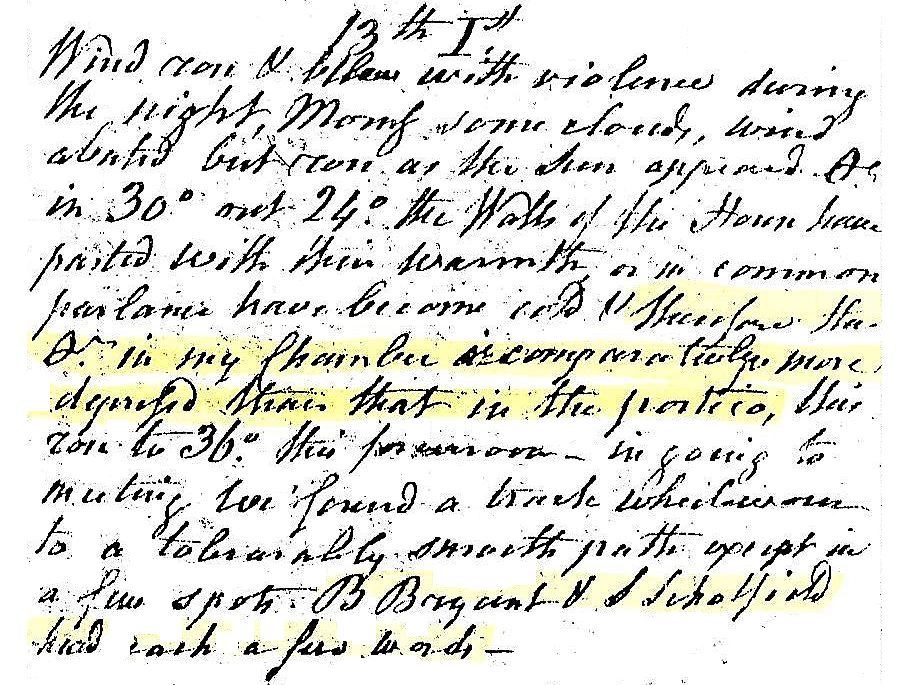 13th 1st
Wind rose & blew with violence during
the night, Morng some clouds, wind
abated but rose as the Sun appeared &c
in 30° out 24° the Walls of the House have
parted with their warmth, or in common
parlance have become cold & therefore the
in my Chamber is comparatively more
depressed than that in the portico, this
rose to 36° this forenoon – in going to
meeting we found a track which worn
to a tolerably smooth path except in
a few spots – B Bryant & S Scholfield
had each a few words –